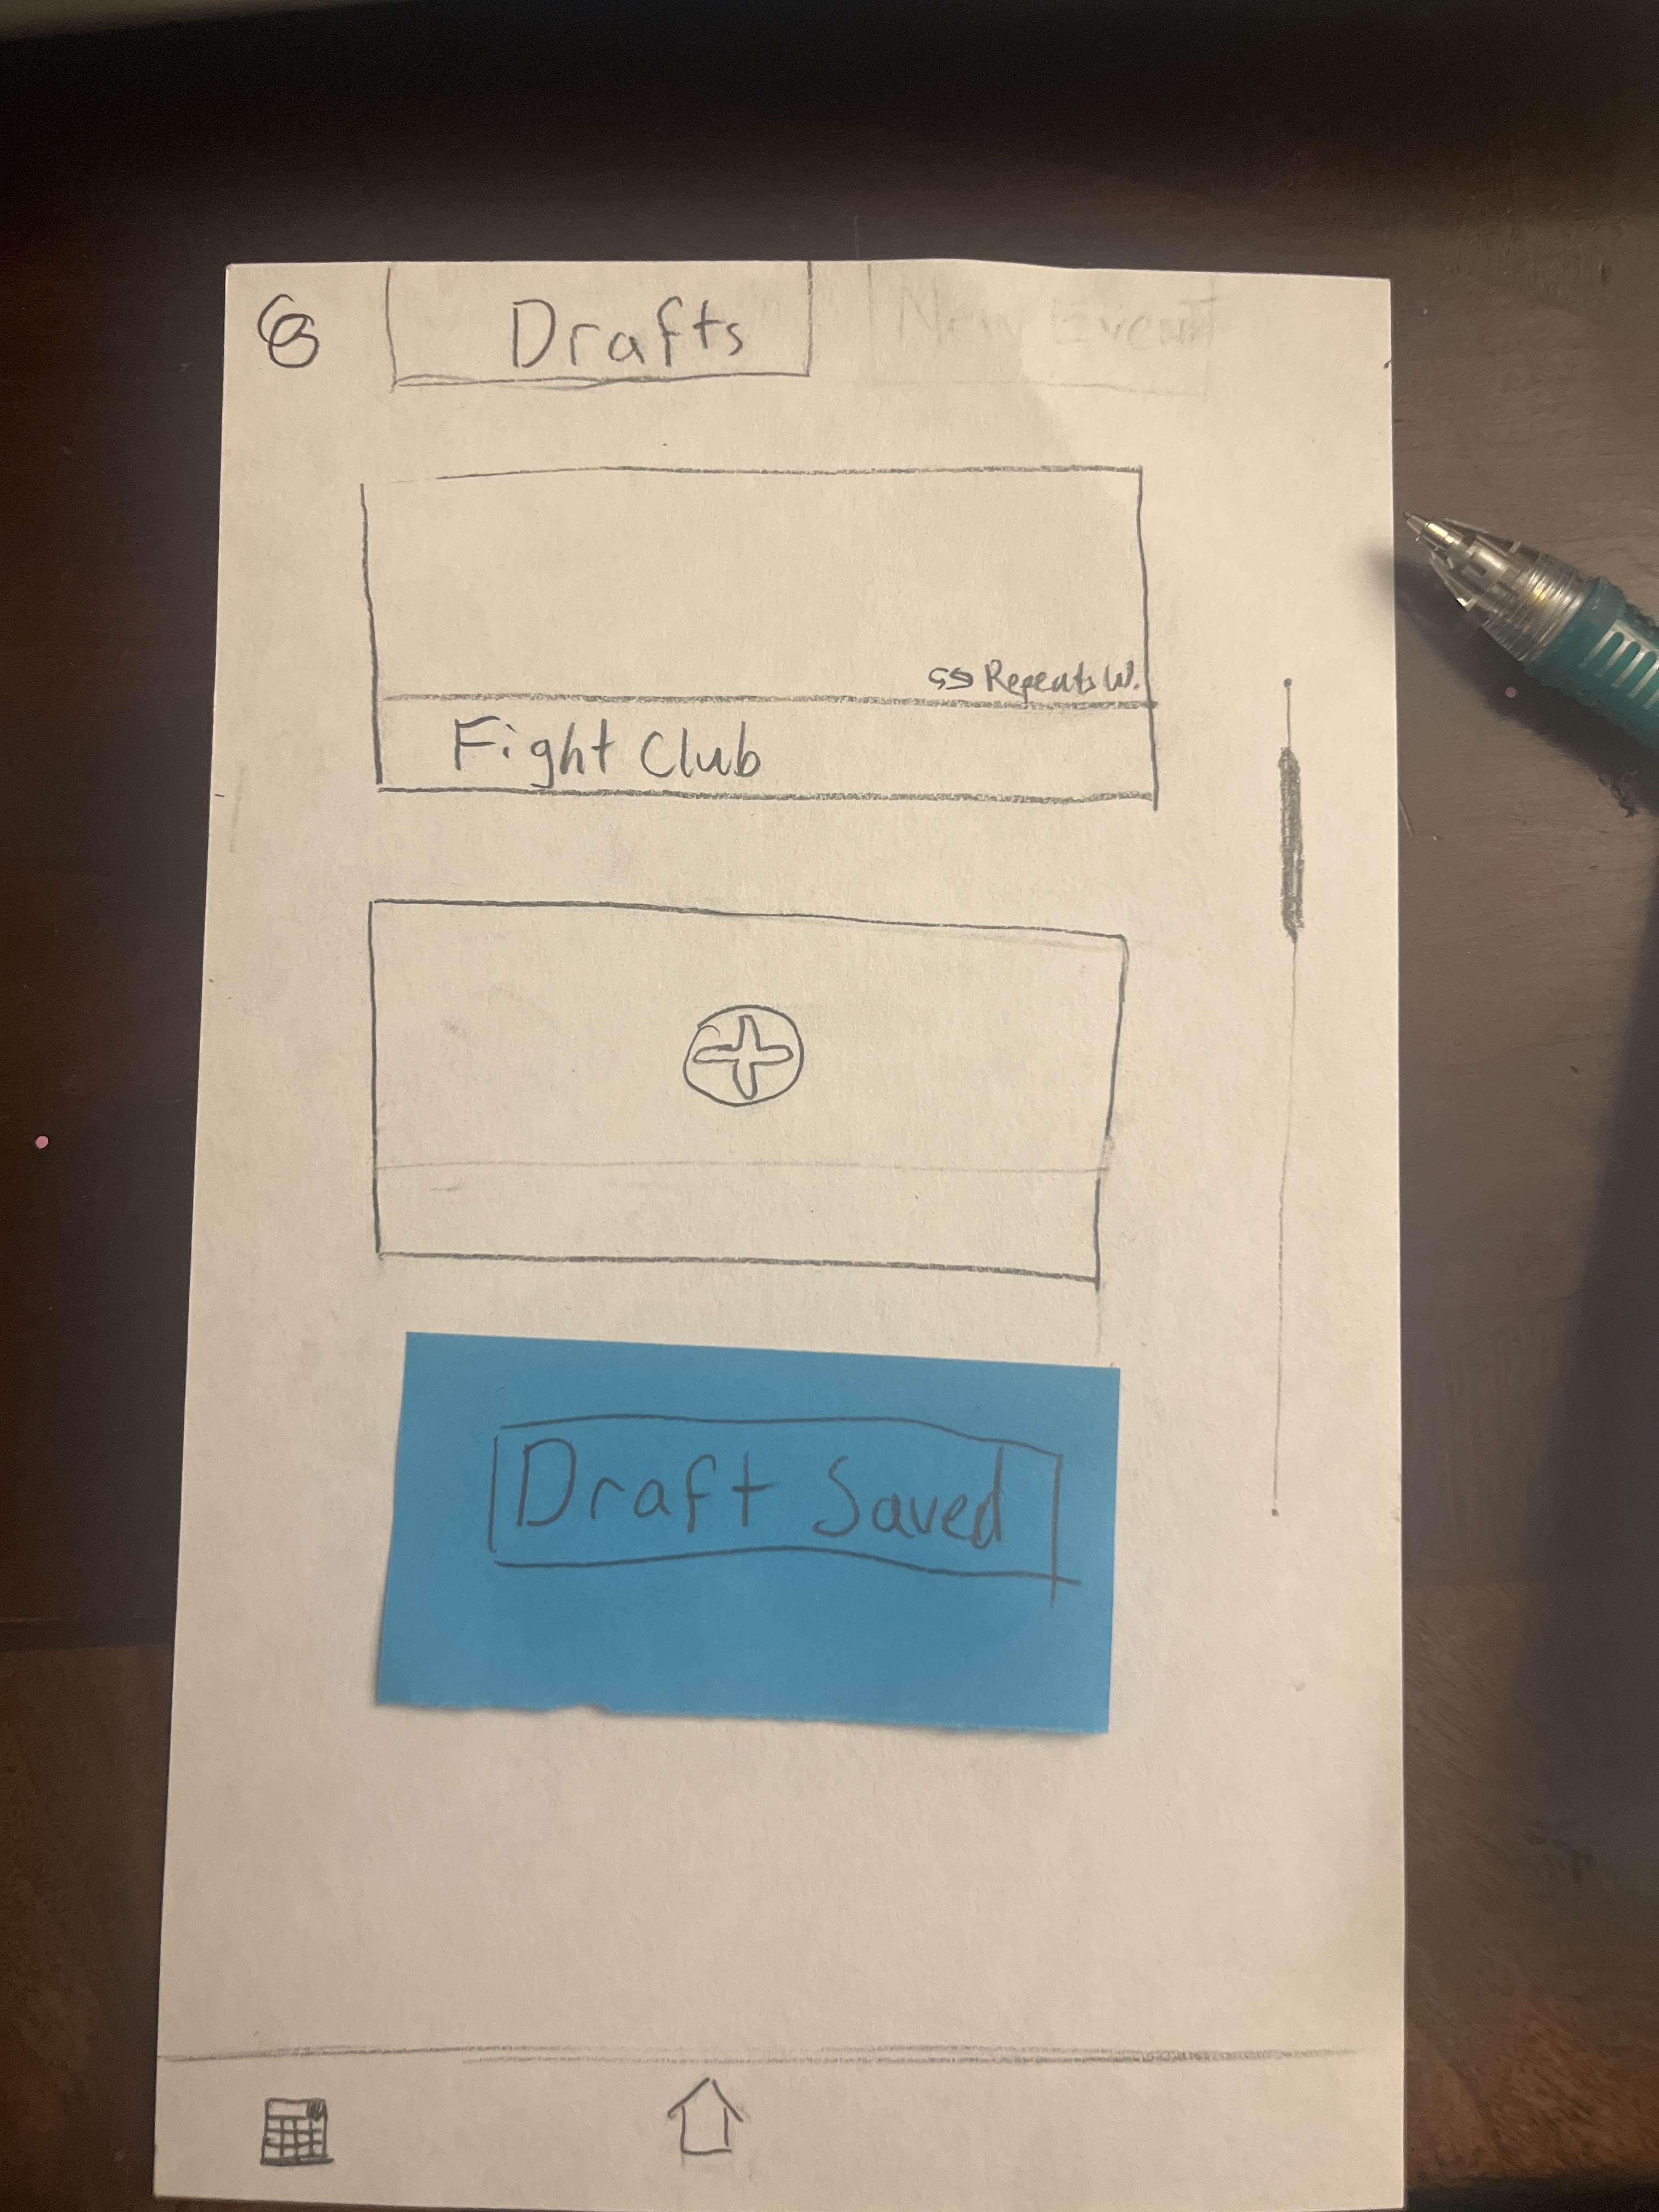 Drafts
New Event
Repeats W.
Fight Club
Draft Saved